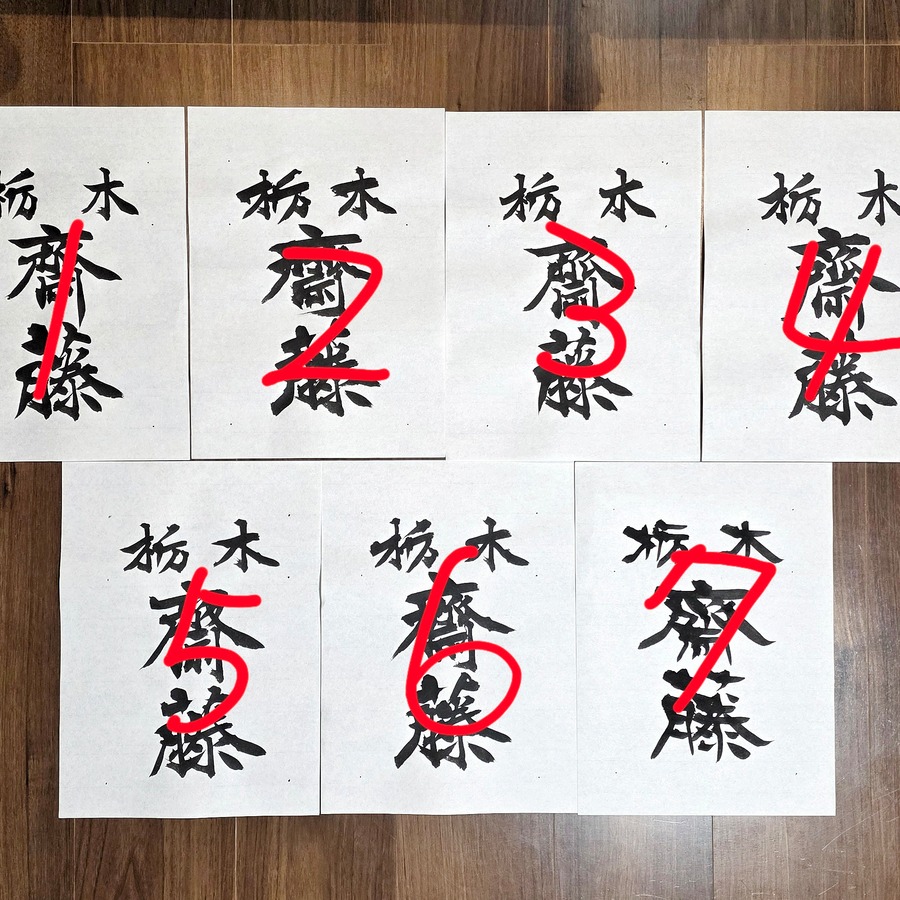 栃木
齋
藤
1
栃木
齋
藤
2
栃木
齋
藤
3
栃木
齋
藤
4
栃木
齋
藤
5
栃木
齋
藤
6
栃木
齋
藤
7